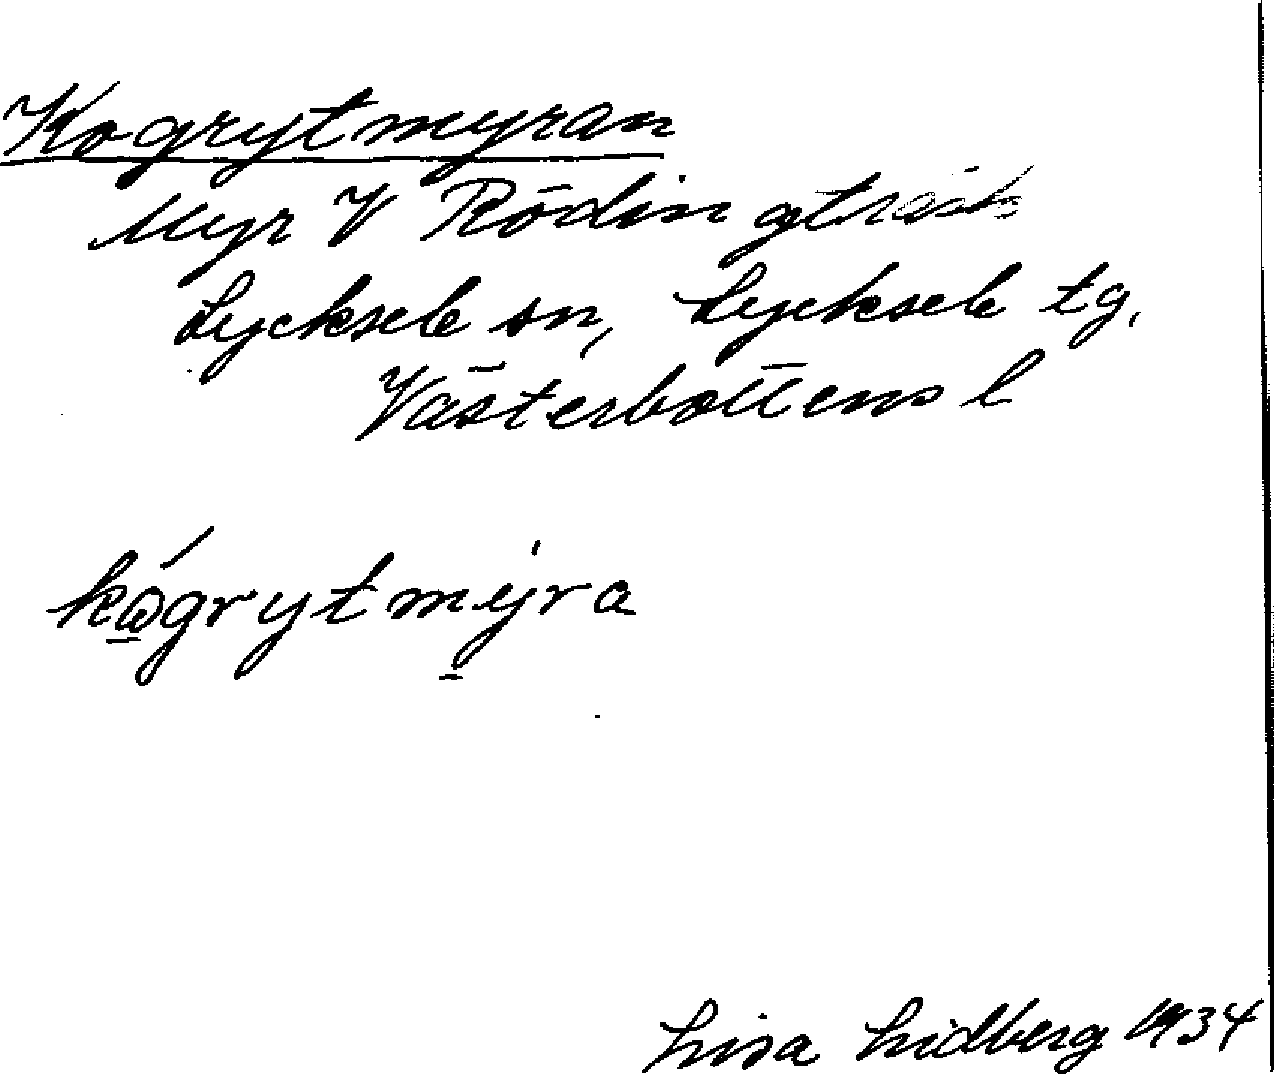 Kogrytmyran
Myr V Rödingträsk
Lycksele sn, Lycksele tg.
Västerbottens l
kǫ́grytmy̱̍ra
Lisa Lidberg 1934